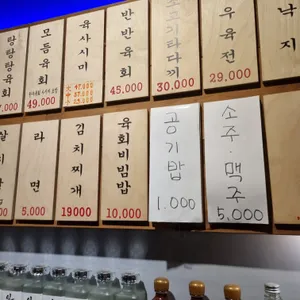 탕탕탕육회
모듬육회
49,000
육사시미
반반육회
45.000
소고기타다끼
30.000
우육전
29.000
낙지
라면
5,000
김치찌개
19000
육회비빔밥
10,000
공기밥
1.000
소주·맥주
5,000